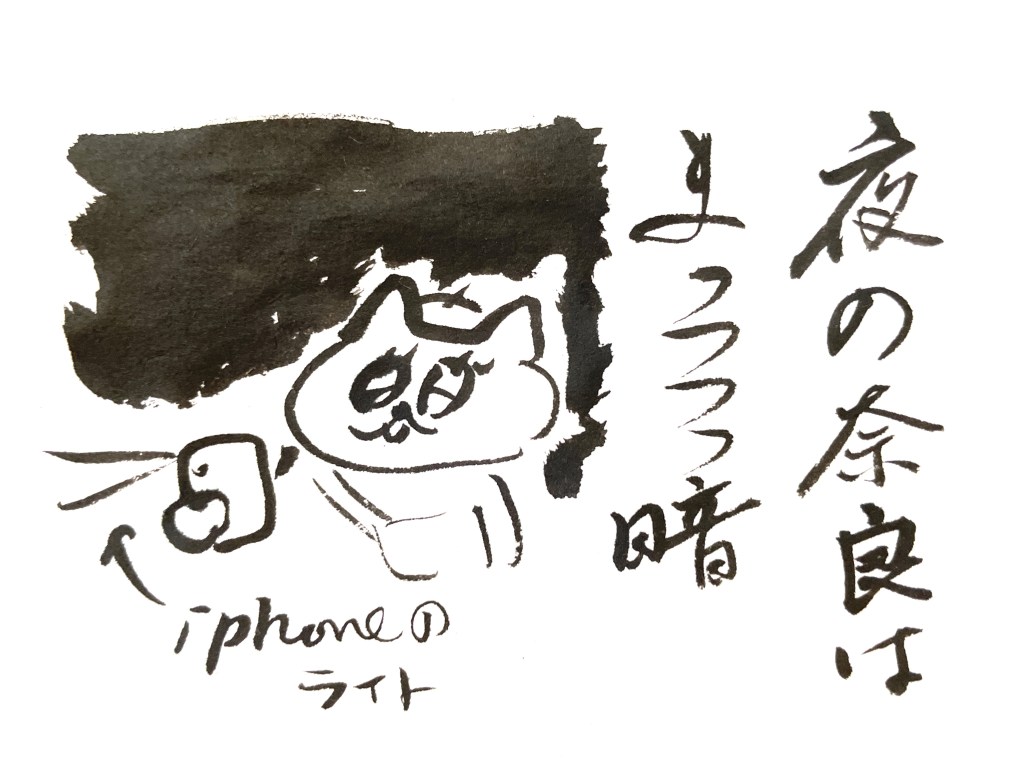 夜の奈良は
まっっっっ暗
iphoneの
ライト